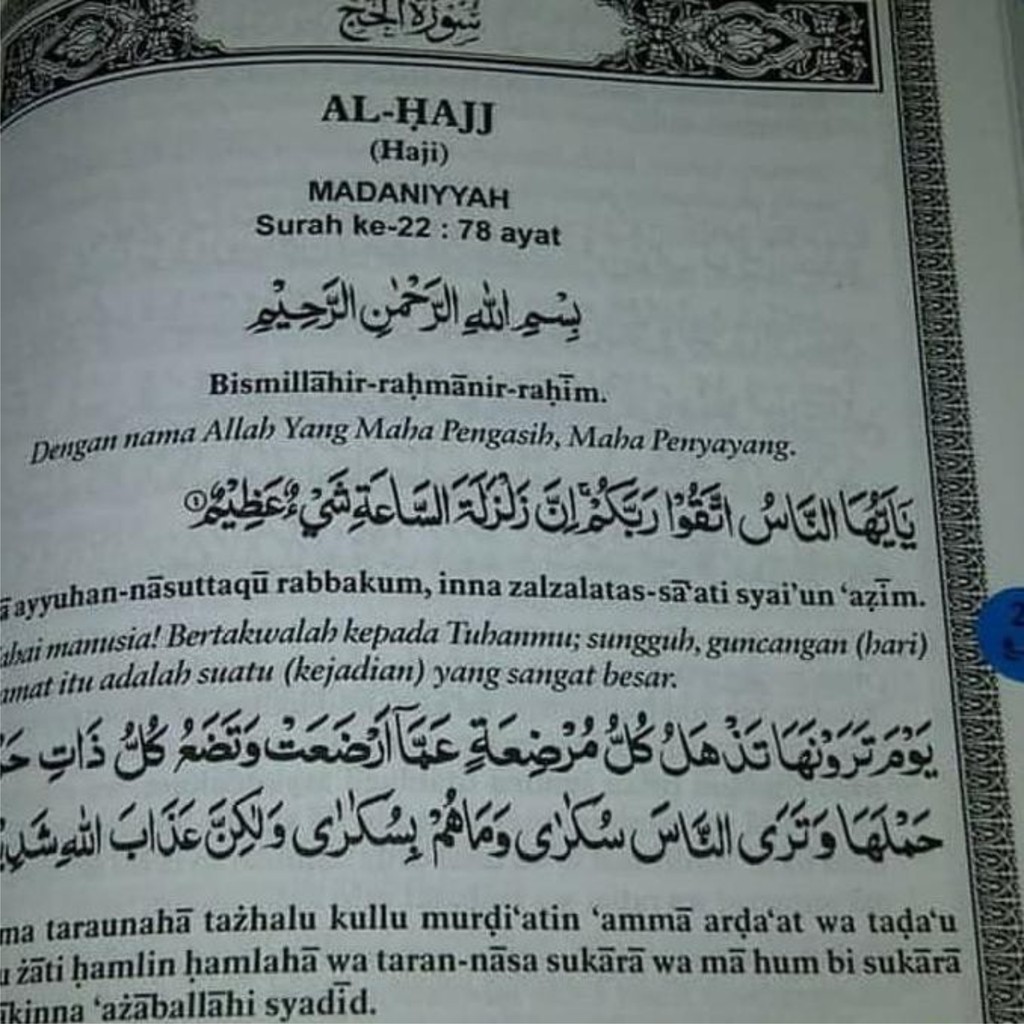 سورة الحج
AL-ḤAJJ
(Haji)
MADANIYYAH
Surah ke-22 : 78 ayat
بِسْمِ اللّٰهِ الرَّحْمٰنِ الرَّحِيْمِ
Bismillāhir-raḥmānir-raḥīm.
Dengan nama Allah Yang Maha Pengasih, Maha Penyayang.
يٰٓاَيُّهَا النَّاسُ اتَّقُوْا رَبَّكُمْۚ اِنَّ زَلْزَلَةَ السَّاعَةِ شَيْءٌ عَظِيْمٌ ١
ā ayyuhan-nāsuttaqū rabbakum, inna zalzalatas-sā‘ati syai'un ‘aẓīm.
ahai manusia! Bertakwalah kepada Tuhanmu; sungguh, guncangan (hari)
amat itu adalah suatu (kejadian) yang sangat besar.
يَوْمَ تَرَوْنَهَا تَذْهَلُ كُلُّ مُرْضِعَةٍ عَمَّآ اَرْضَعَتْ وَتَضَعُ كُلُّ ذَاتِ
حَمْلَهَا وَتَرَى النَّاسَ سُكٰرٰى وَمَا هُمْ بِسُكٰرٰى وَلٰكِنَّ عَذَابَ اللّٰهِ
ma taraunahā tażhalu kullu murḍi‘atin ‘ammā arḍa‘at wa taḍa‘u
u żāti ḥamlin ḥamlahā wa taran-nāsa sukārā wa mā hum bi sukārā
ikinna ‘ażāballāhi syadīd.